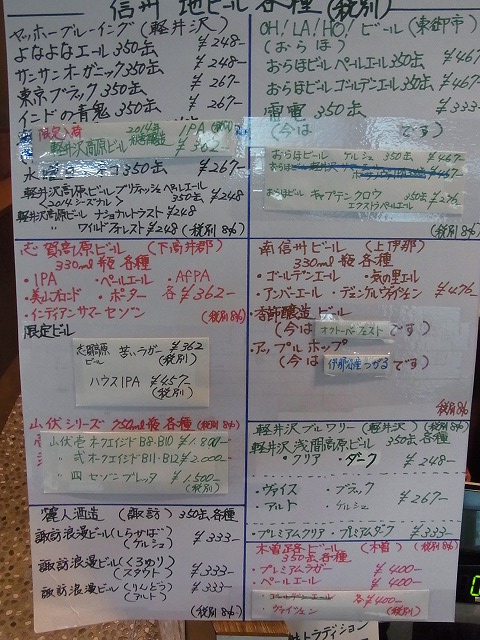 信州 地ビール各種(税別)
ヤッホーブルーイング(軽井沢)
よなよなエール 350缶 ¥248-
サンサンオーガニック350缶 ¥248-
東京ブラック350缶 ¥267-
インドの青鬼350缶 ¥267-
限定入荷 2014年 IPA (税別)
軽井沢高原ビール ¥362-
350缶 ¥267-
軽井沢高原ビール ブリティッシュペールエール
<2014シーズナル> 350缶 ¥248
軽井沢高原ビール ナショナルトラスト ¥248
〃 ワイルドフォレスト ¥248
(税別8%)
志賀高原ビール(下高井郡)
330ml瓶各種
・IPA ・ペールエール ・AfPA
・美山ブロンド ・ポーター 各¥362-
・インディアンサマーセゾン (税別8%)
限定ビール
志賀高原ビール 苦いラガー ¥362
(税別)
ハウスIPA ¥457-
(税別)
山伏シリーズ 750ml瓶各種(税別8%)
山伏壱 オークエイジドB8・B10 ¥1.800-
〃 弐 オークエイジドB11・B12 ¥2.000-
〃 四 セゾンブレッタ ¥1.500-
(税別)
麗人酒造(諏訪)350缶各種
諏訪浪漫ビール(しらかば)
(ケルシュ) ¥333-
諏訪浪漫ビール(くろゆり)
(スタウト) ¥333-
諏訪浪漫ビール(りんどう)
(アルト) ¥333-
(税別8%)
OH!LA!HO!ビール(東御市)
(おらほ)
おらほビールペールエール350缶 ¥467
おらほビールゴールデンエール350缶 ¥467
雷電 350缶 ¥333-
(今は です)
おらほビール ケルシュ 350缶 ¥467-
おらほビール キャプテンクロウ 350缶 ¥276-
エクストラペールエール
(税別8%)
南信州ビール(上伊那)
330ml瓶各種
・ゴールデンエール ・気の里エール
・アンバーエール ・デュンケルヴァイツェン ¥476-
・季節醸造ビール
(今は オクトーバーフェスト です)
・アップルホップ
(今は 伊那谷産つがる です)
税別8%
軽井沢ブルワリー(軽井沢)(税別8%)
軽井沢浅間高原ビール 350缶各種
・クリア ・ダーク ¥248-
・ヴァイス ・ブラック
・アルト ・ケルシュ ¥267-
・プレミアムクリア ・プレミアムダーク ¥333-
木曽路ビール(木曽)(税別8%)
350缶各種
・プレミアムラガー ¥400-
・ペールエール ¥400-
・ゴールデンエール 各¥400-
・ヴァイツェン (税別8%)
トラディション